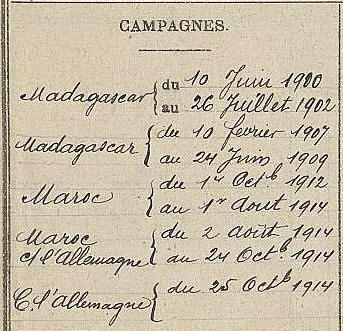 CAMPAGNES.
Madagascar { du 10 Juin 1900
au 26 Juillet 1902
Madagascar { du 10 février 1907
au 24 Juin 1909
Maroc { du 1er Octb 1912
au 1er Aout 1914
Maroc
c/ l'Allemagne { du 2 août 1914
au 24 Octb 1914
C. l'Allemagne { du 25 Octb 1914